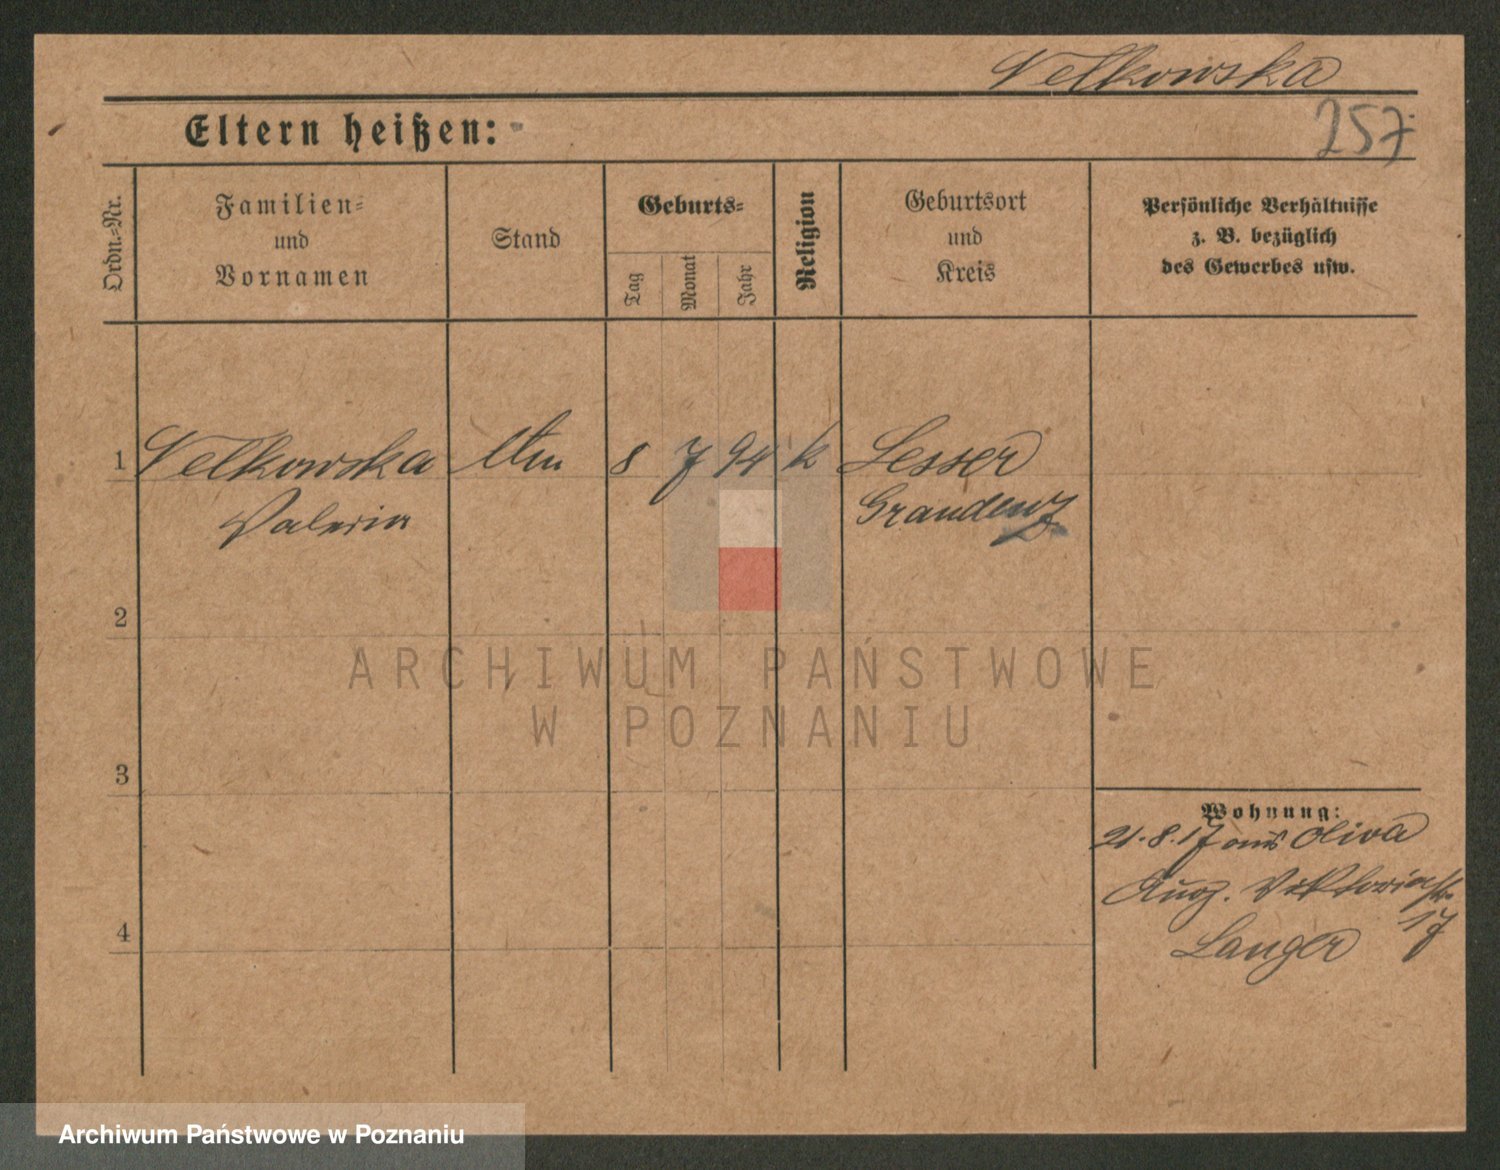 Velkowska
257
Eltern heißen:
Ordn.-Nr.
Familien-
und
Vornamen
Stand
Geburts-
Tag
Monat
Jahr
Religion
Geburtsort
und
Kreis
Persönliche Verhältnisse
z. B. bezüglich
des Gewerbes usw.
1 Velkowska 8 7 94 k Lesser
Valeria Graudenz
2
ARCHIWUM PAŃSTWOWE
W POZNANIU
3
Wohnung:
21.8.17 aus Oliva
Aug. Viktoriastr.
17
4
Langer
Archiwum Państwowe w Poznaniu